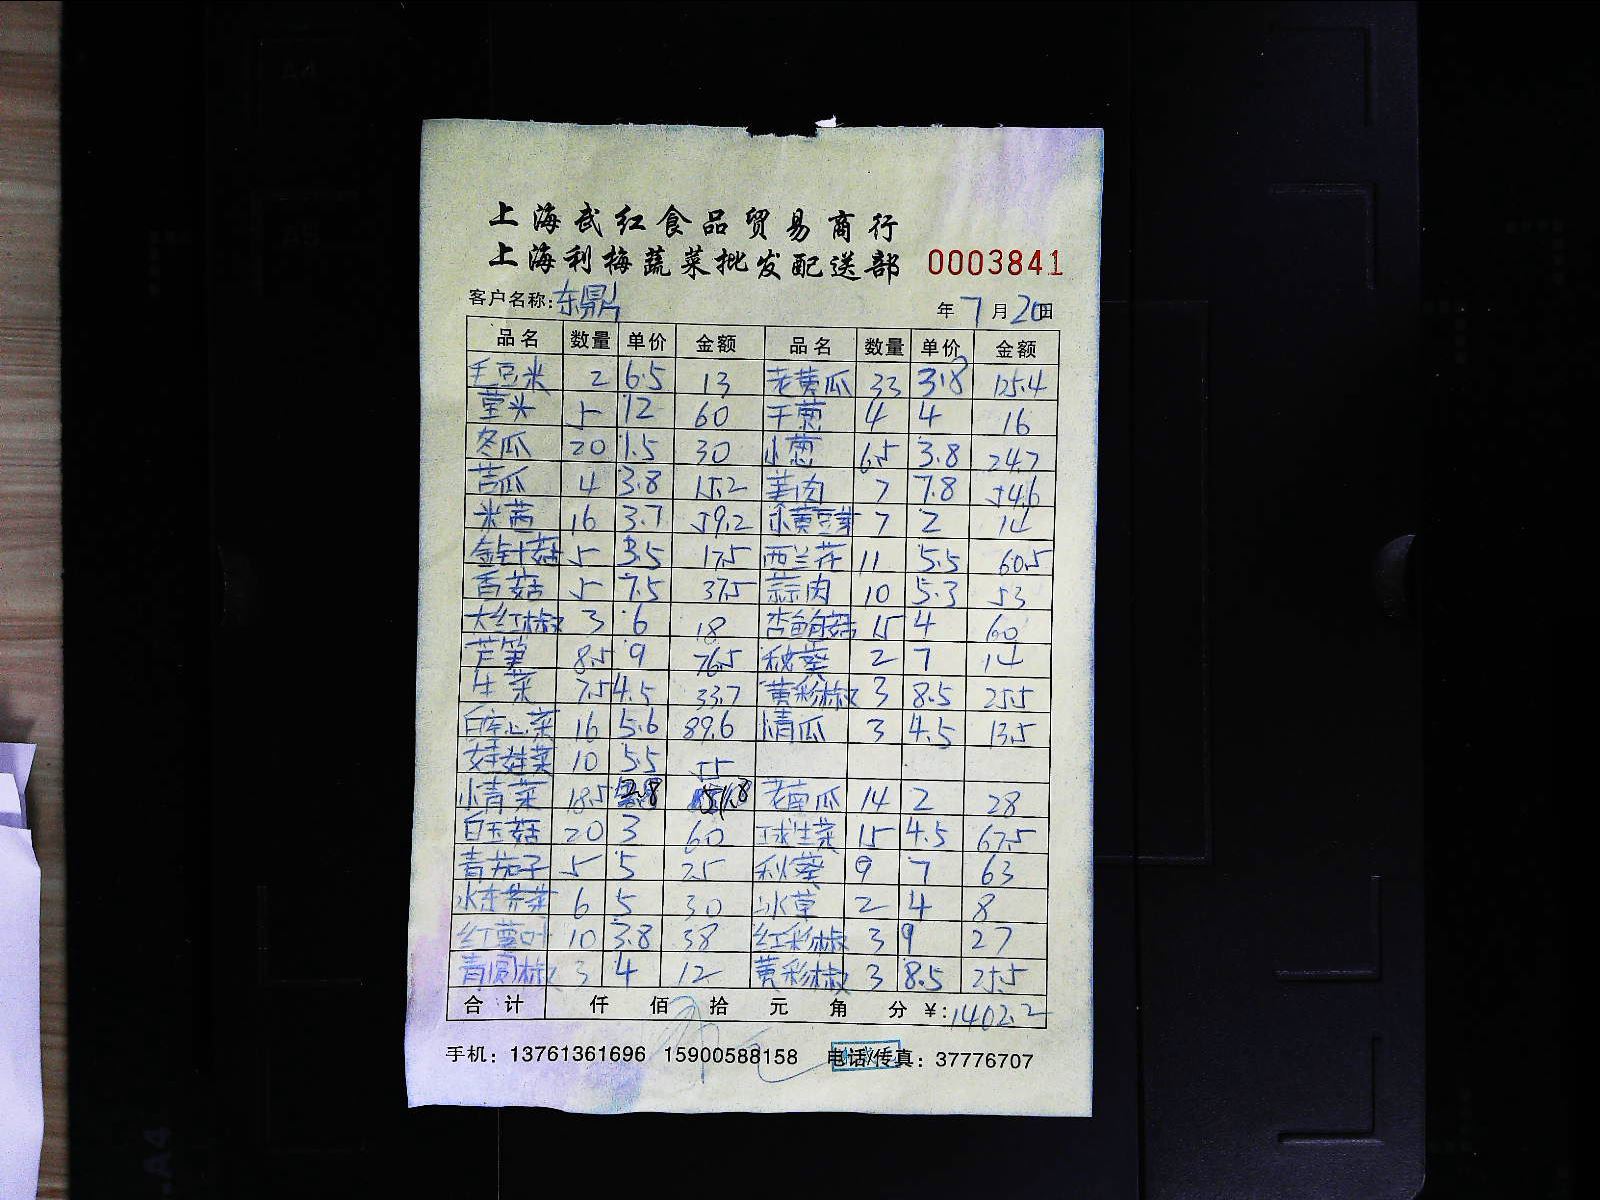 上海武红食品贸易商行
上海利梅蔬菜批发配送部 0003841
客户名称:东鼎 年7月20日
品名 数量 单价 金额 品名 数量 单价 金额
毛豆米 2 6.5 13 老黄瓜 33 3.8 125.4
5 12 60 干葱 4 4 16
冬瓜 20 1.5 30 小葱 6.5 3.8 24.7
苦瓜 4 3.8 15.2 姜肉 7 7.8 54.6
米茜 16 3.7 59.2 小黄豆芽 7 2 14
金针菇 5 3.5 17.5 西兰花 11 5.5 60.5
香菇 5 7.5 37.5 蒜肉 10 5.3 53
大红椒 3 6 18 杏鲍菇 15 4 60
芦笋 8.5 9 76.5 秋葵 2 7 14
生菜 7.5 4.5 33.7 黄彩椒 3 8.5 25.5
白空心菜 16 5.6 89.6 青瓜 3 4.5 13.5
娃娃菜 10 5.5 55
小青菜 18.5 2.8 51.8 老南瓜 14 2 28
白玉菇 20 3 60 球生菜 15 4.5 67.5
青茄子 5 5 25 秋葵 9 7 63
水东芥菜 6 5 30 冰草 2 4 8
红薯叶 10 3.8 38 红彩椒 3 9 27
青圆椒 3 4 12 黄彩椒 3 8.5 25.5
合计 仟 佰 拾 元 角 分 ¥:1402.2
手机:13761361696 15900588158 电话/传真:37776707